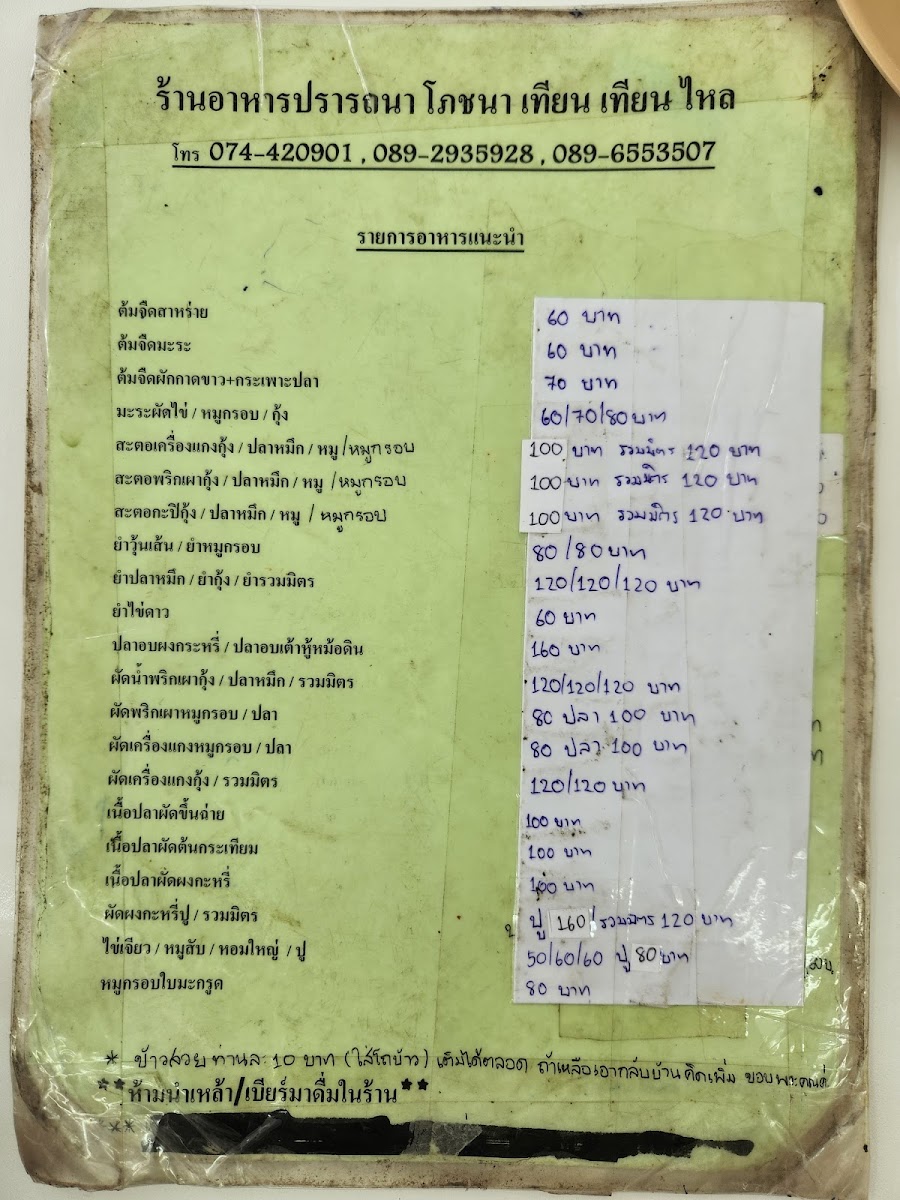 ร้านอาหารปรารถนา โภชนา เทียน เทียน ไหล
โทร 074-420901 , 089-2935928 , 089-6553507
รายการอาหารแนะนำ
ต้มจืดสาหร่าย 60 บาท
ต้มจืดมะระ 60 บาท
ต้มจืดผักกาดขาว+กระเพาะปลา 70 บาท
มะระผัดไข่ / หมูกรอบ / กุ้ง 60/70/80 บาท
สะตอเครื่องแกงกุ้ง / ปลาหมึก / หมู /หมูกรอบ 100 บาท รวมมิตร 120 บาท
สะตอพริกเผากุ้ง / ปลาหมึก / หมู /หมูกรอบ 100 บาท รวมมิตร 120 บาท
สะตอกะปิกุ้ง / ปลาหมึก / หมู / หมูกรอบ 100 บาท รวมมิตร 120 บาท
ยำวุ้นเส้น / ยำหมูกรอบ 80 /80 บาท
ยำปลาหมึก / ยำกุ้ง / ยำรวมมิตร 120/120/120 บาท
ยำไข่ดาว 60 บาท
ปลาอบผงกระหรี่ / ปลาอบเต้าหู้หม้อดิน 160 บาท
ผัดน้ำพริกเผากุ้ง / ปลาหมึก / รวมมิตร 120/120/120 บาท
ผัดพริกเผาหมูกรอบ / ปลา 80 ปลา 100 บาท
ผัดเครื่องแกงหมูกรอบ / ปลา 80 ปลา 100 บาท
ผัดเครื่องแกงกุ้ง / รวมมิตร 120/120 บาท
เนื้อปลาผัดขึ้นฉ่าย 100 บาท
เนื้อปลาผัดต้นกระเทียม 100 บาท
เนื้อปลาผัดผงกะหรี่ 100 บาท
ผัดผงกะหรี่ปู / รวมมิตร ปู 160/รวมมิตร 120 บาท
ไข่เจียว / หมูสับ / หอมใหญ่ / ปู 50/60/60 ปู 80 บาท
หมูกรอบใบมะกรูด 80 บาท
* ข้าวสวย ท่านละ 10 บาท (ใส่โถข้าว) เติมได้ตลอด ถ้าเหลือเอากลับบ้าน คิดเพิ่ม ขอบพระคุณค่ะ
**ห้ามนำเหล้า/เบียร์มาดื่มในร้าน**
**